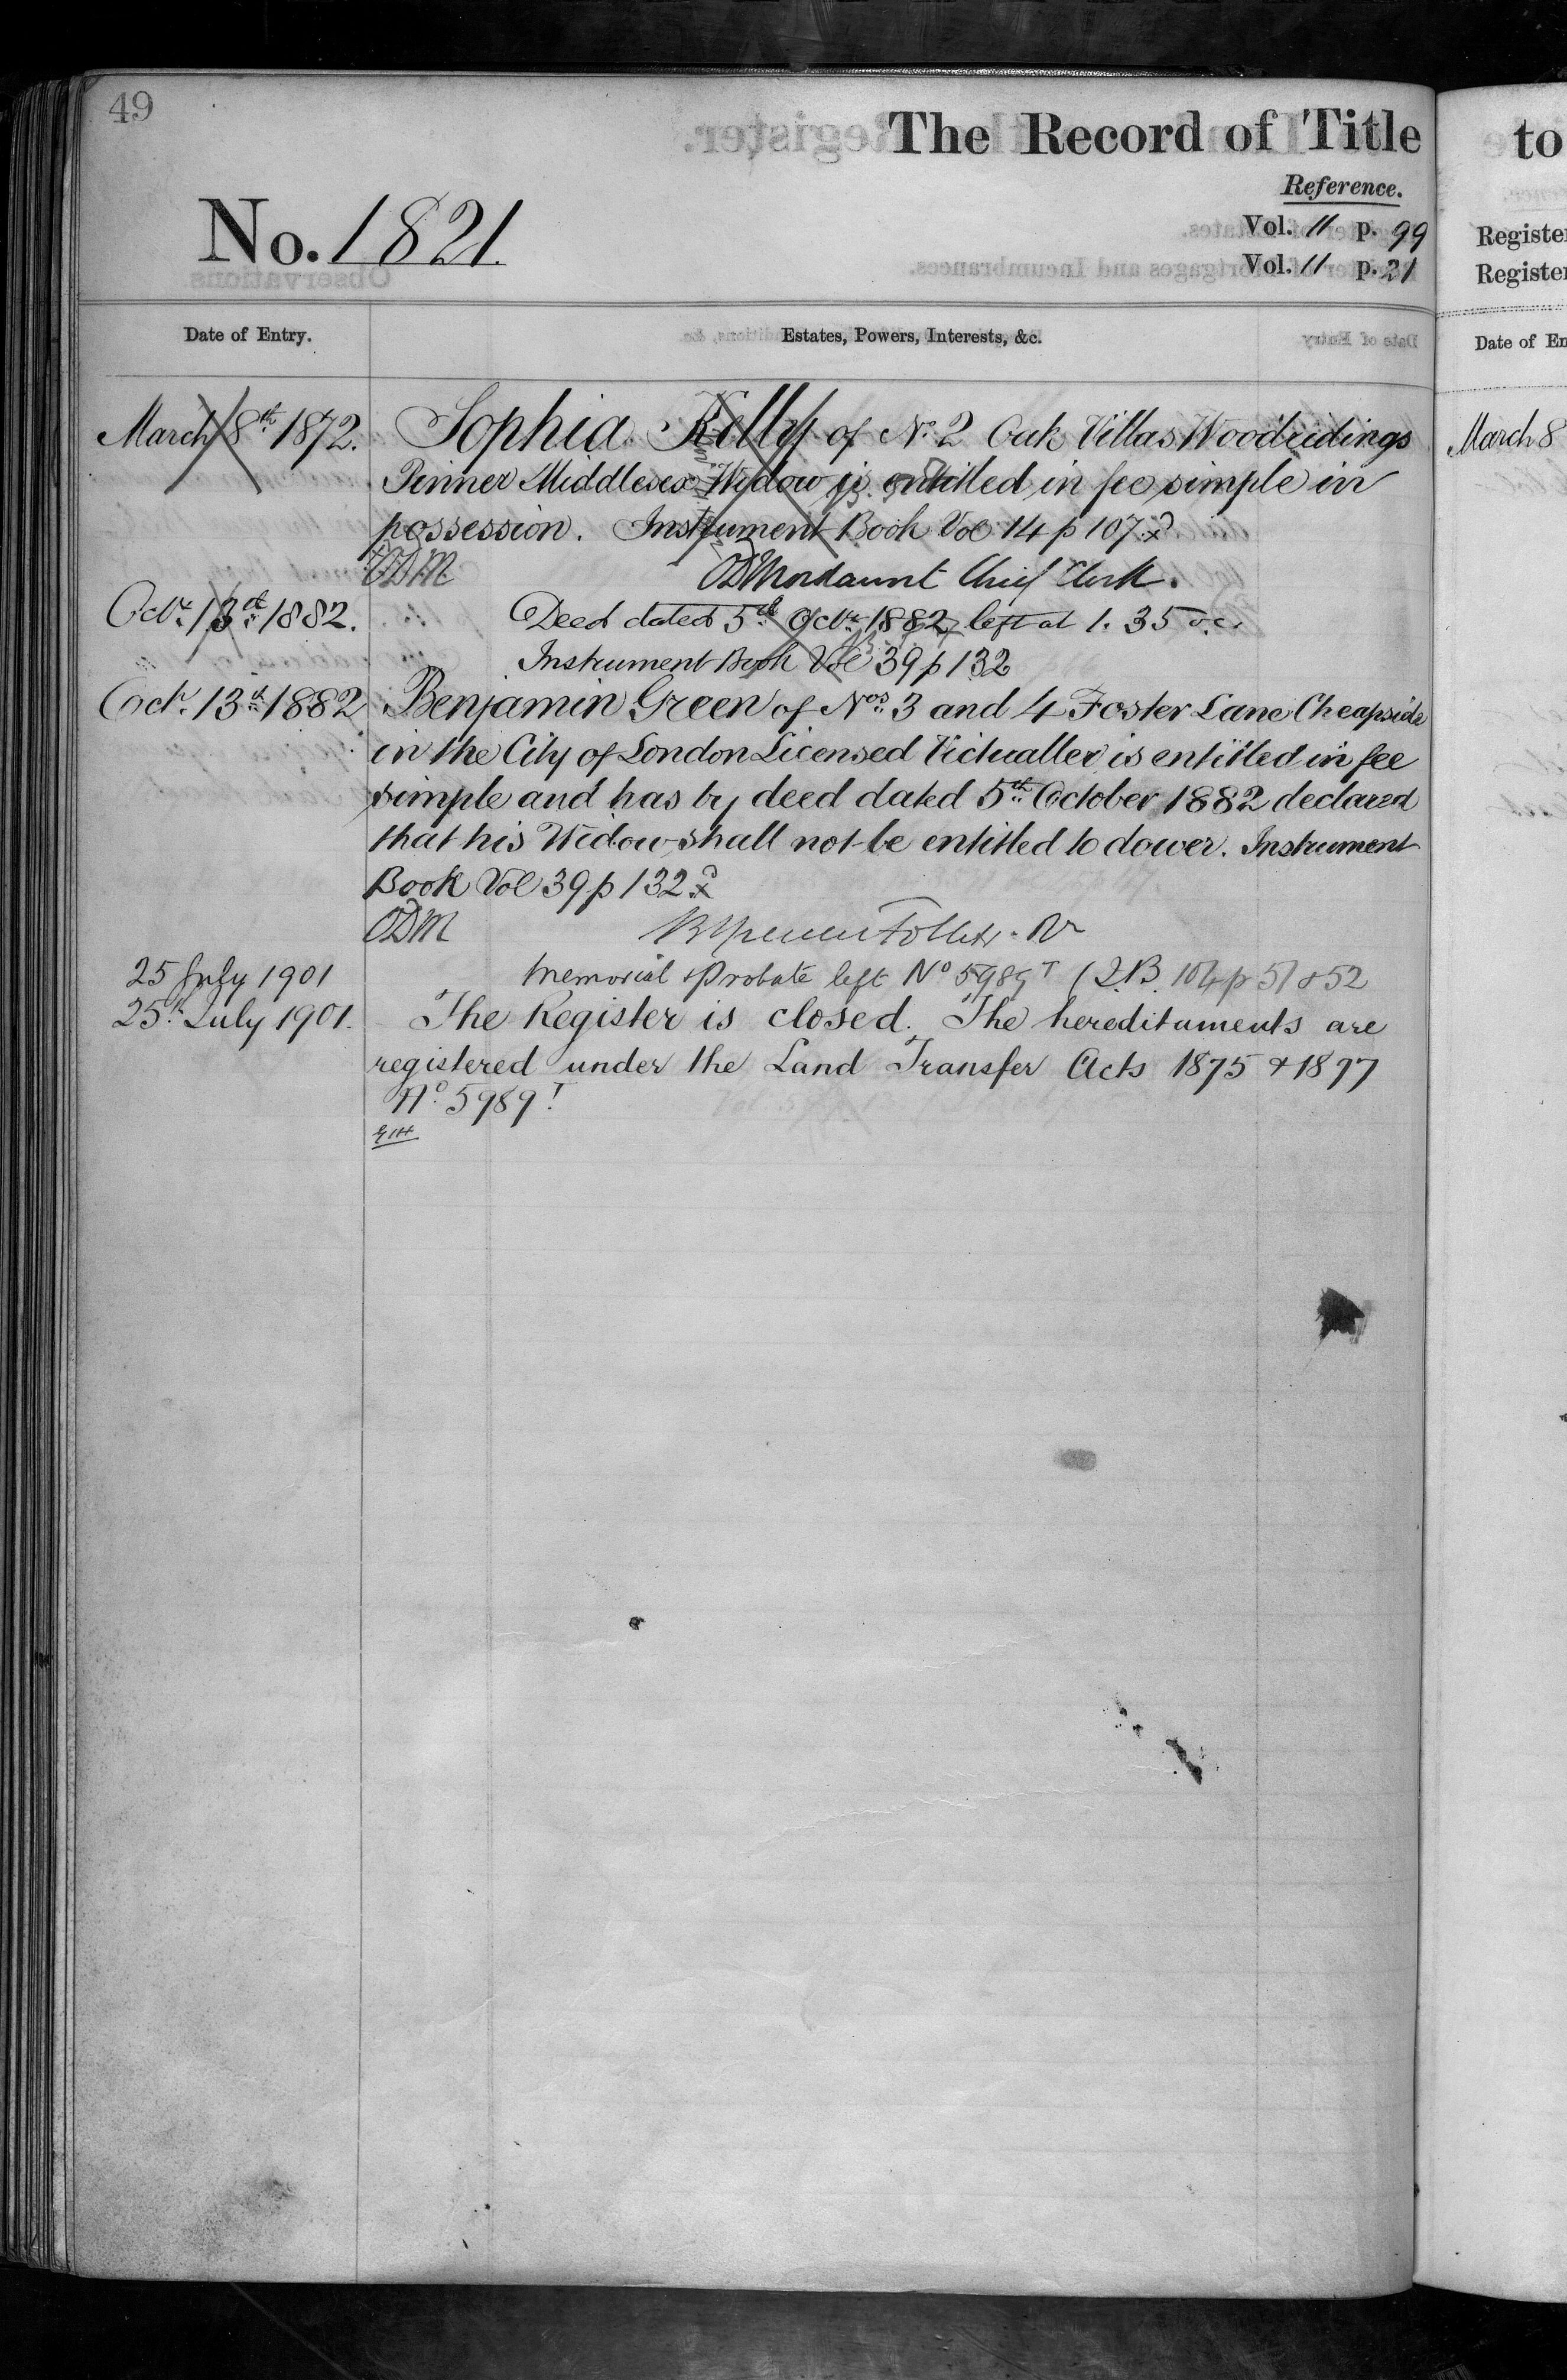 49
The Record of Title
to
Reference.
No. 1821.
Vol. 11 p. 99
Vol. 11 p. 21
Date of Entry.
Estates, Powers, Interests, &c.
March 8th 1872.
Sophia Kelly of No. 2 Oak Villas Woodridings
Pinner Middlesex Widow is entitled in fee simple in
possession. Instrument Book Vol 14 p 107
ODM
ODMordaunt Chief Clerk.
Octr. 13th 1882.
Deed dated 5th Octr. 1882 left at 1. 35 o.c.
Instrument Book Vol 39 p 132
Oct. 13th 1882
Benjamin Green of Nos. 3 and 4 Foster Lane Cheapside
in the City of London Licensed Victualler is entitled in fee
simple and has by deed dated 5th October 1882 declared
that his Widow shall not be entitled to dower. Instrument
Book Vol 39 p 132
ODM
25 July 1901
Memorial & Probate left No 5989T (I.B. 104 p 51 & 52
25th July 1901.
The Register is closed. The hereditaments are
registered under the Land Transfer Acts 1875 & 1897
No. 5989T
Date of En
March 8